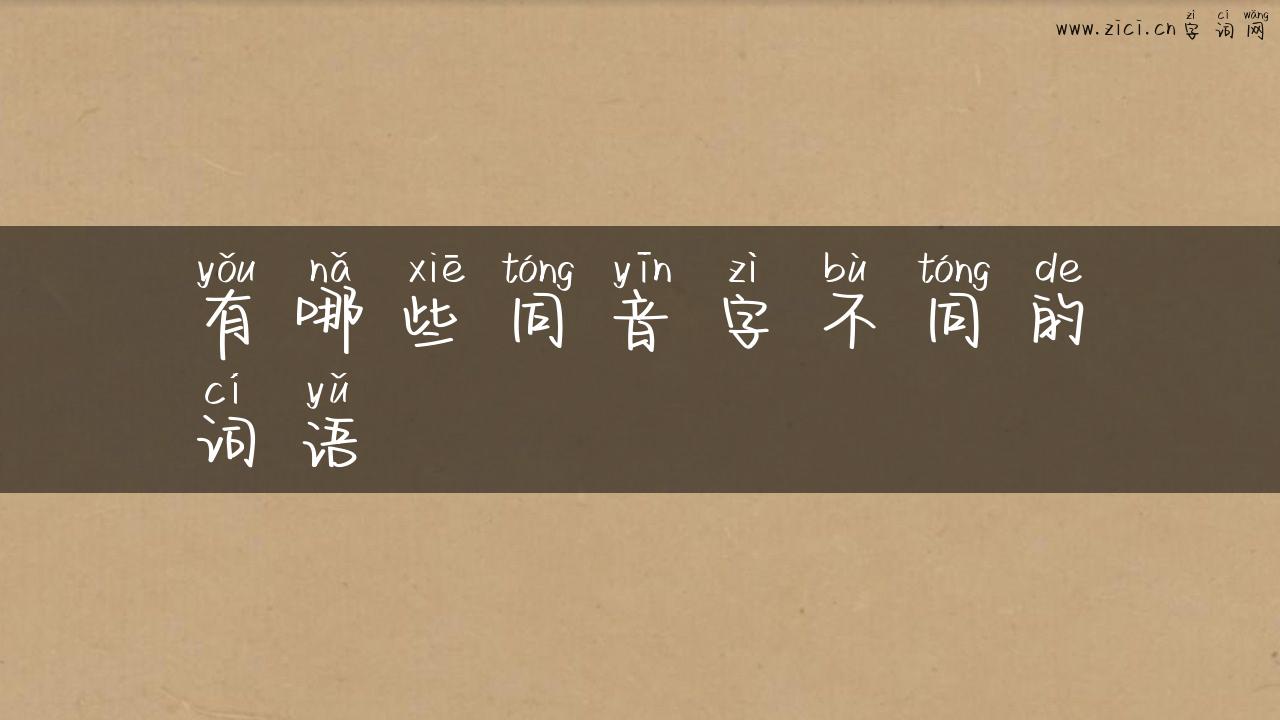 zì cí wǎng
www.zici.cn 字词网
yǒu nǎ xiē tóng yīn zì bù tóng de
有哪些同音字不同的
cí yǔ
词语